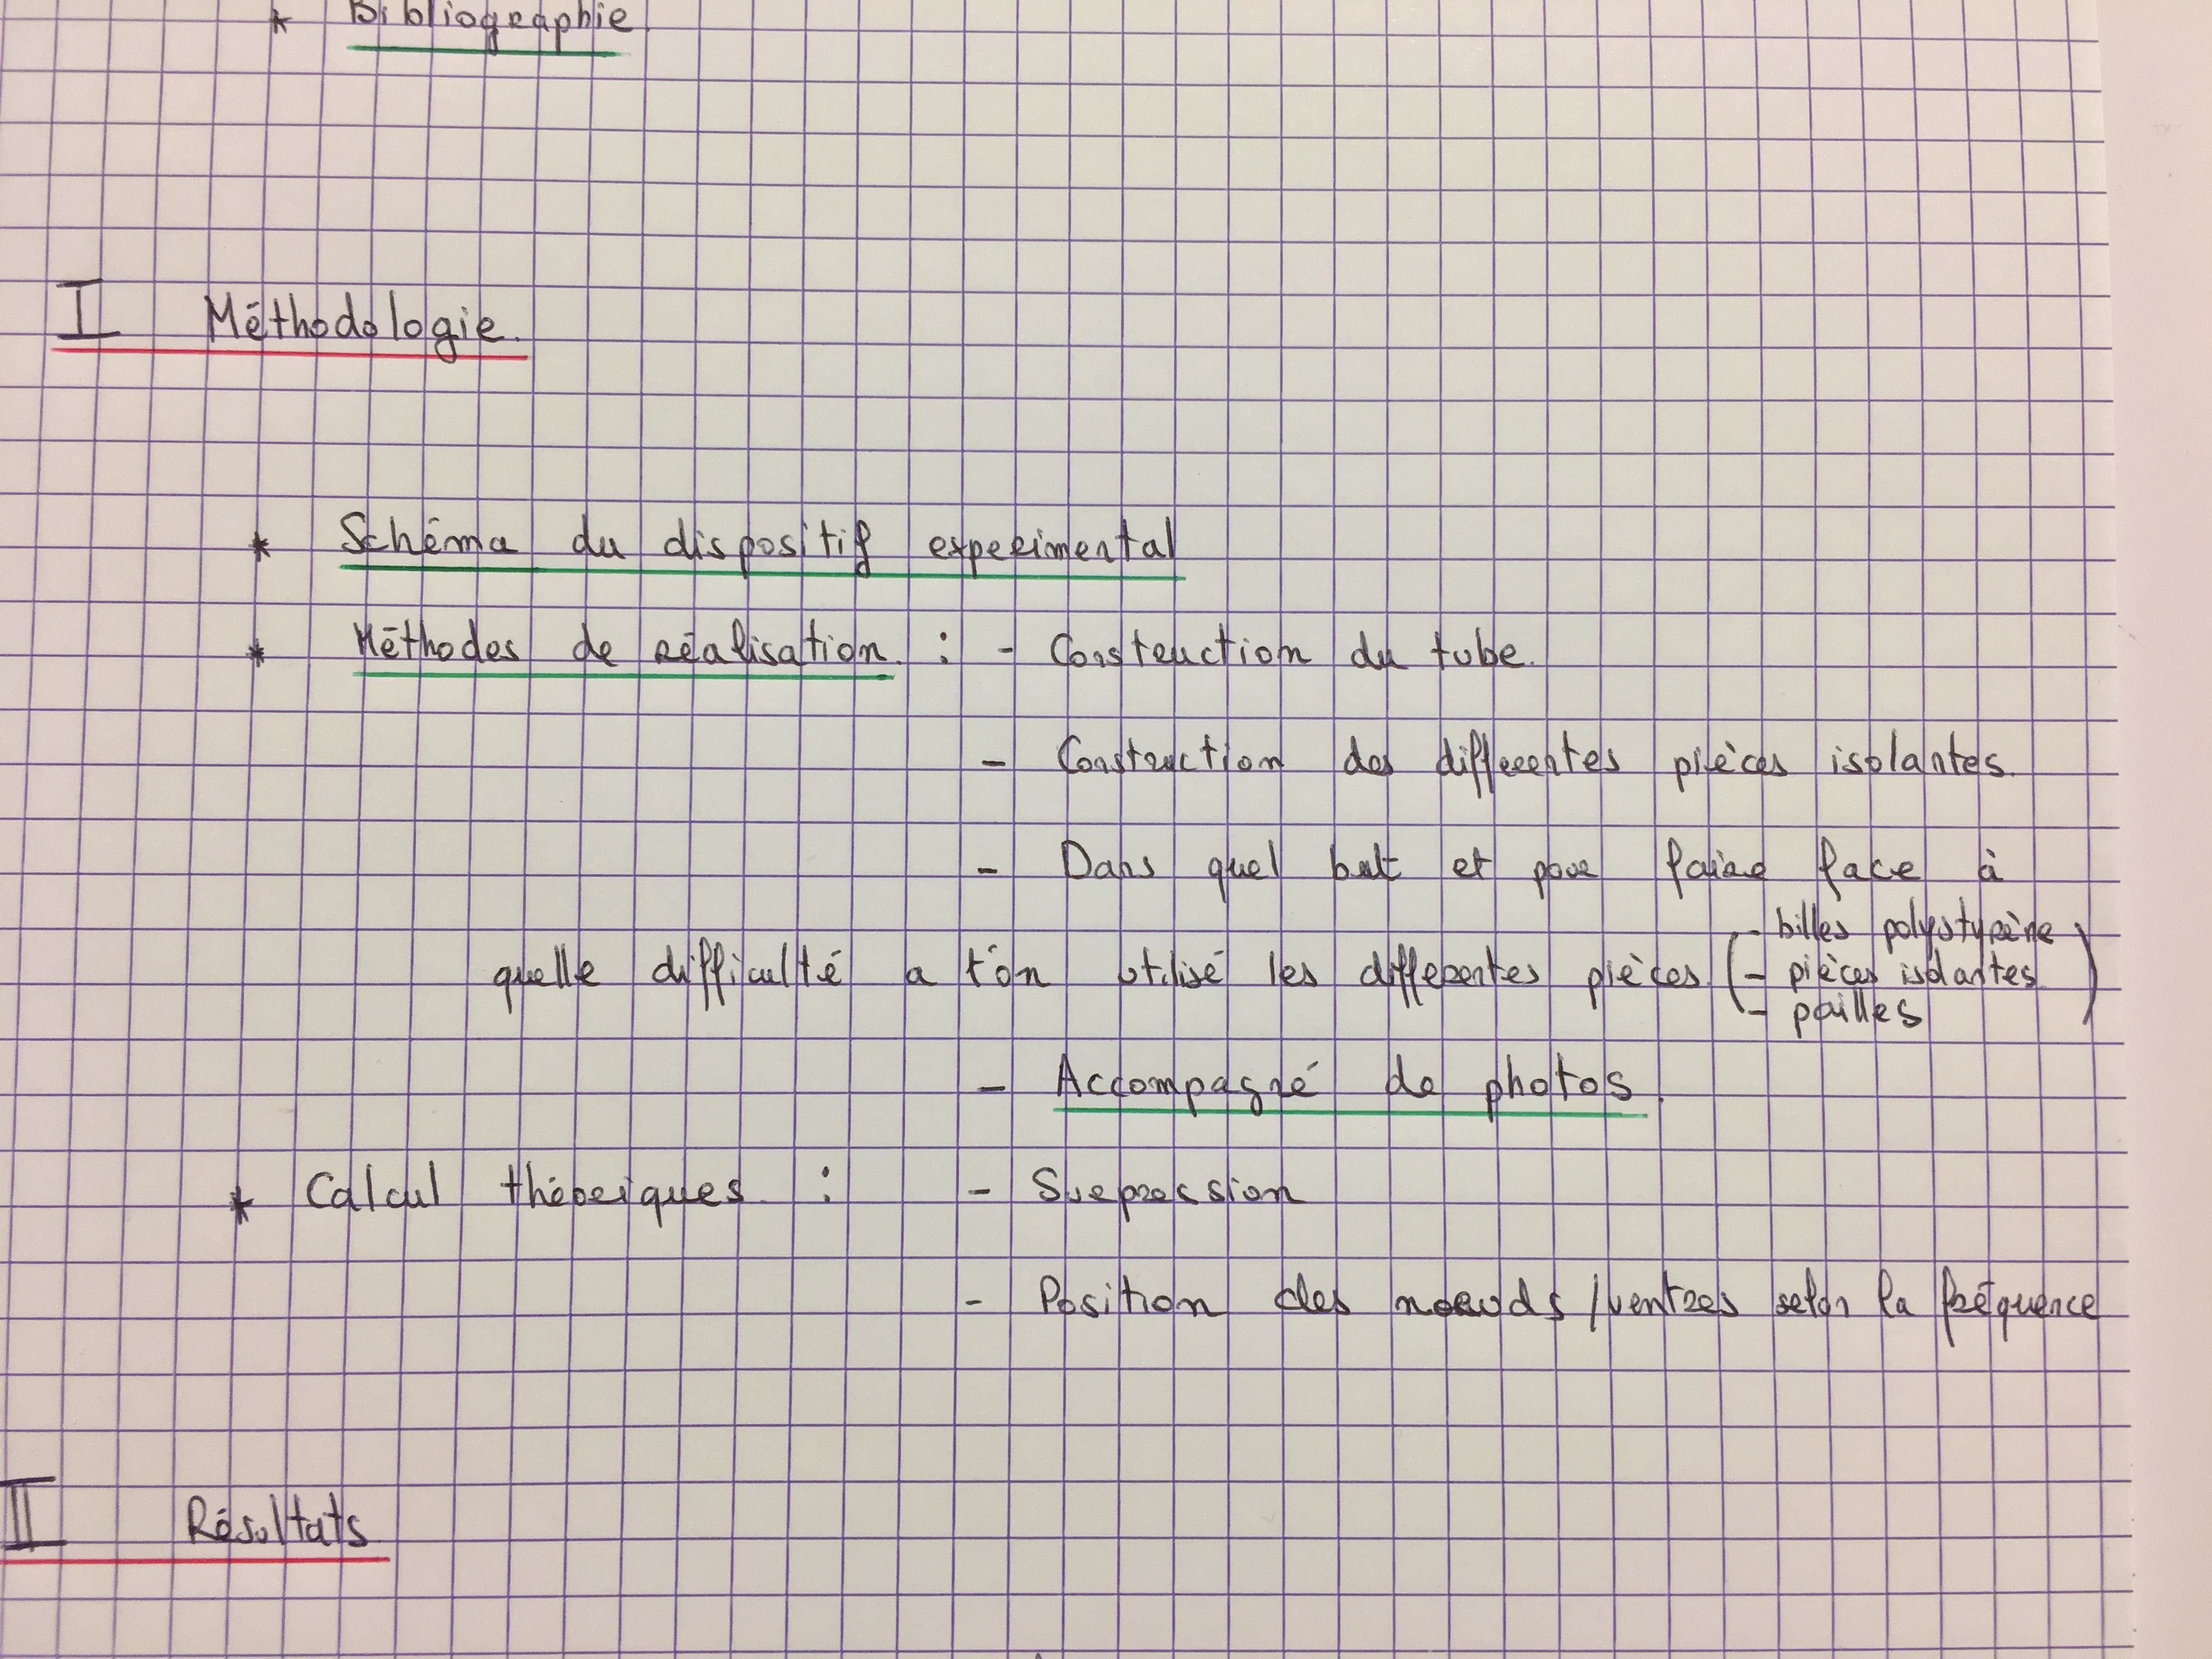 * Bibliographie.
I Méthodologie.
* Schéma du dispositif experimental
* Méthodes de réalisation. : - Construction du tube.
- Construction des differentes pièces isolantes.
- Dans quel but et pour faire face à
quelle difficulté a t'on utilisé les differentes pièces (- billes polystyrène
- pièces isolantes.
- pailles)
- Accompagné de photos.
* Calcul théoriques. : - Surpression
- Position des noeuds / ventres selon la fréquence
II Résultats